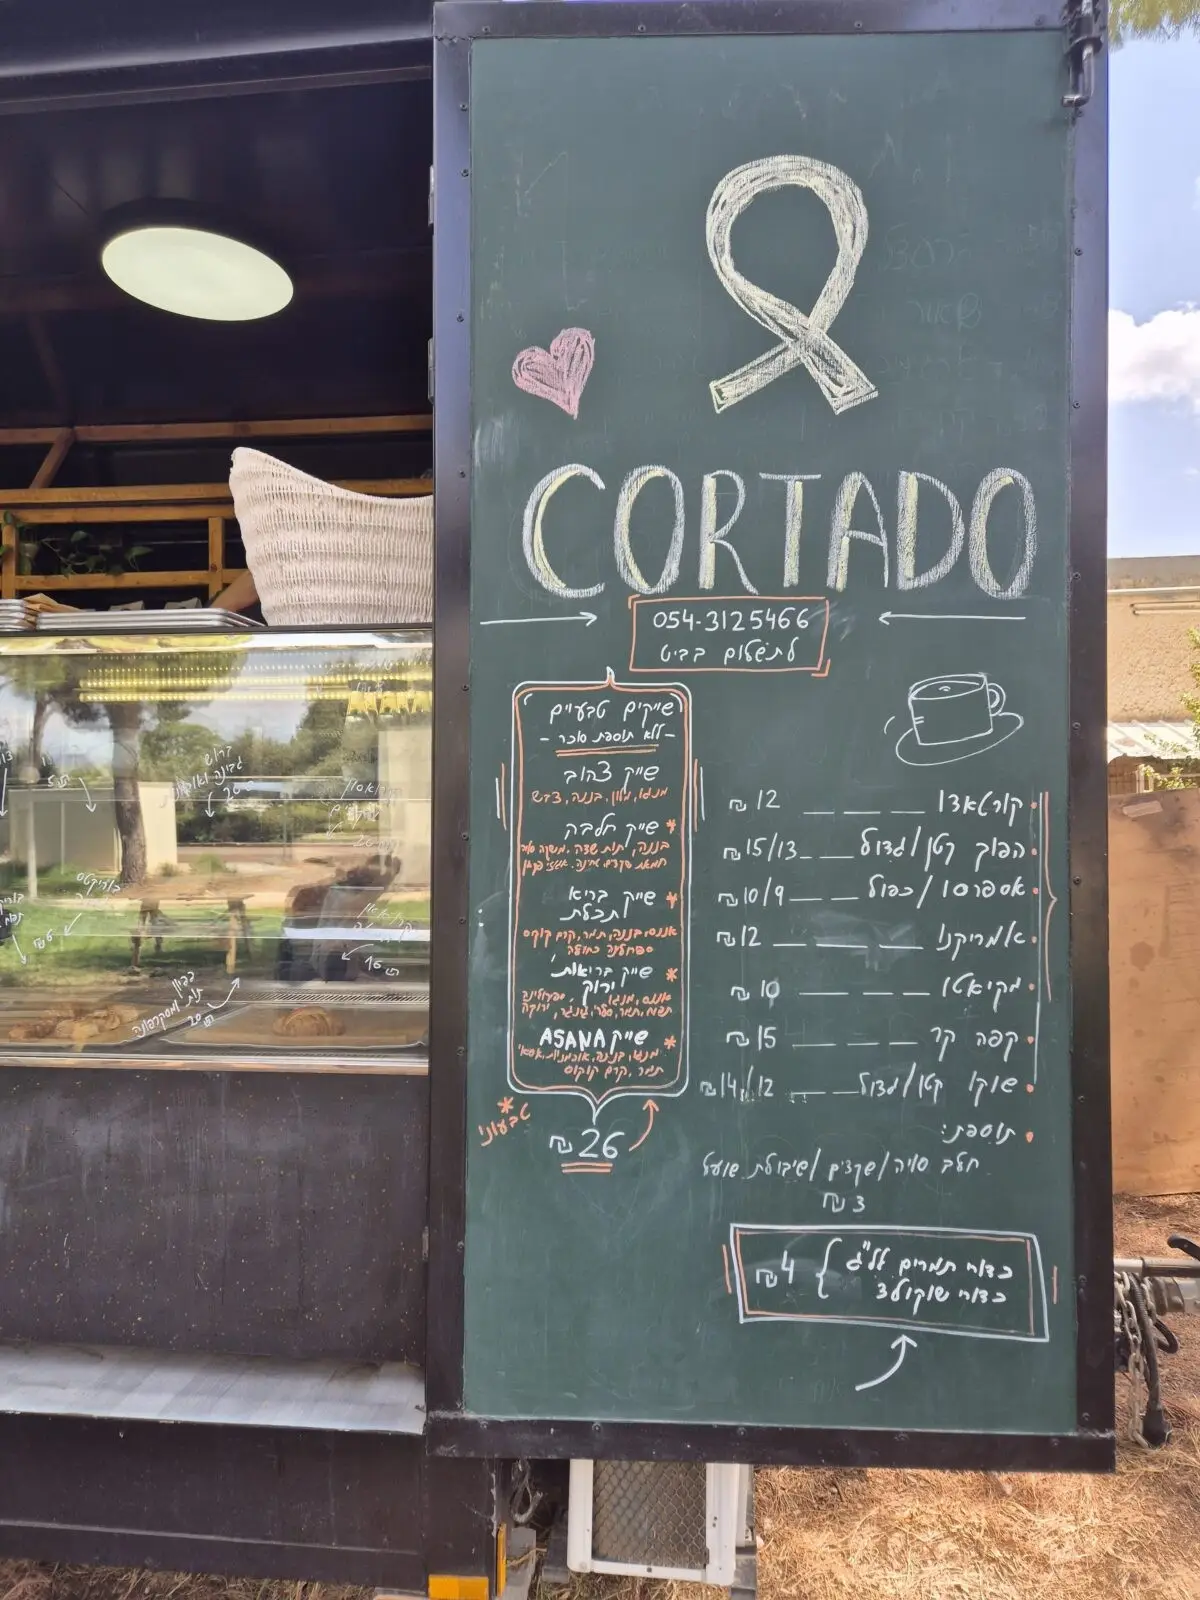 CORTADO
054-3125466
לתשלום בביט
שייקים טבעיים
- ללא תוספת סוכר -
שייק צהוב
מנגו, מלון, בננה, דבש
* שייק חלבה
בננה, תות שדה,
* שייק בריא
תכלת
אננס, בננה, תמר, קרם קוקוס
ספירולינה כחולה
* שייק בריאות
ירוק
אננס, מנגו, ספירולינה
ירוקה
* שייק ASANA
מנגו, בננה, אוכמניות, אסאי
תמר, קרם קוקוס
* טבעוני
26 ₪
קורטאדו _ _ _ 12 ₪
הפוך קטן/גדול _ _ 15/13 ₪
אספרסו/כפול _ _ 10/9 ₪
אמריקנו _ _ _ 12 ₪
מקיאטו _ _ _ _ 10 ₪
קפה קר _ _ _ _ 15 ₪
שוקו קטן/גדול _ _ 14/12 ₪
תוספת:
חלב סויה/שקדים/שיבולת שועל
3 ₪
כדורי תמרים ללי"ג
כדורי שוקולד } 4 ₪
ברוש
20 ₪
16 ₪
תות ומסקרפונה
20 ₪